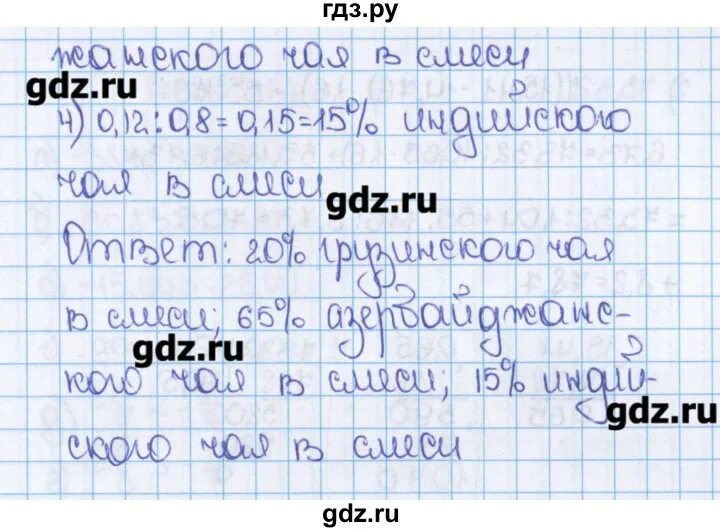 гдз.ру
жанского чая в смеси
gdz.ru
4) 0,12:0,8=0,15=15% индийского
чая в смеси
gdz.ru
Ответ: 20% грузинского чая
в смеси; 65% азербайджанс-
gdz.ru
кого чая в смеси; 15% индий-
gdz.ru
ского чая в смеси
gdz.ru